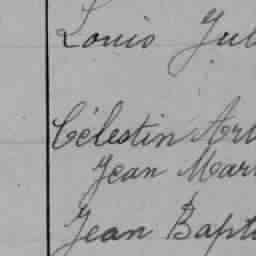 Louis Jul
Célestin Art
Jean Mari
Jean Bapti